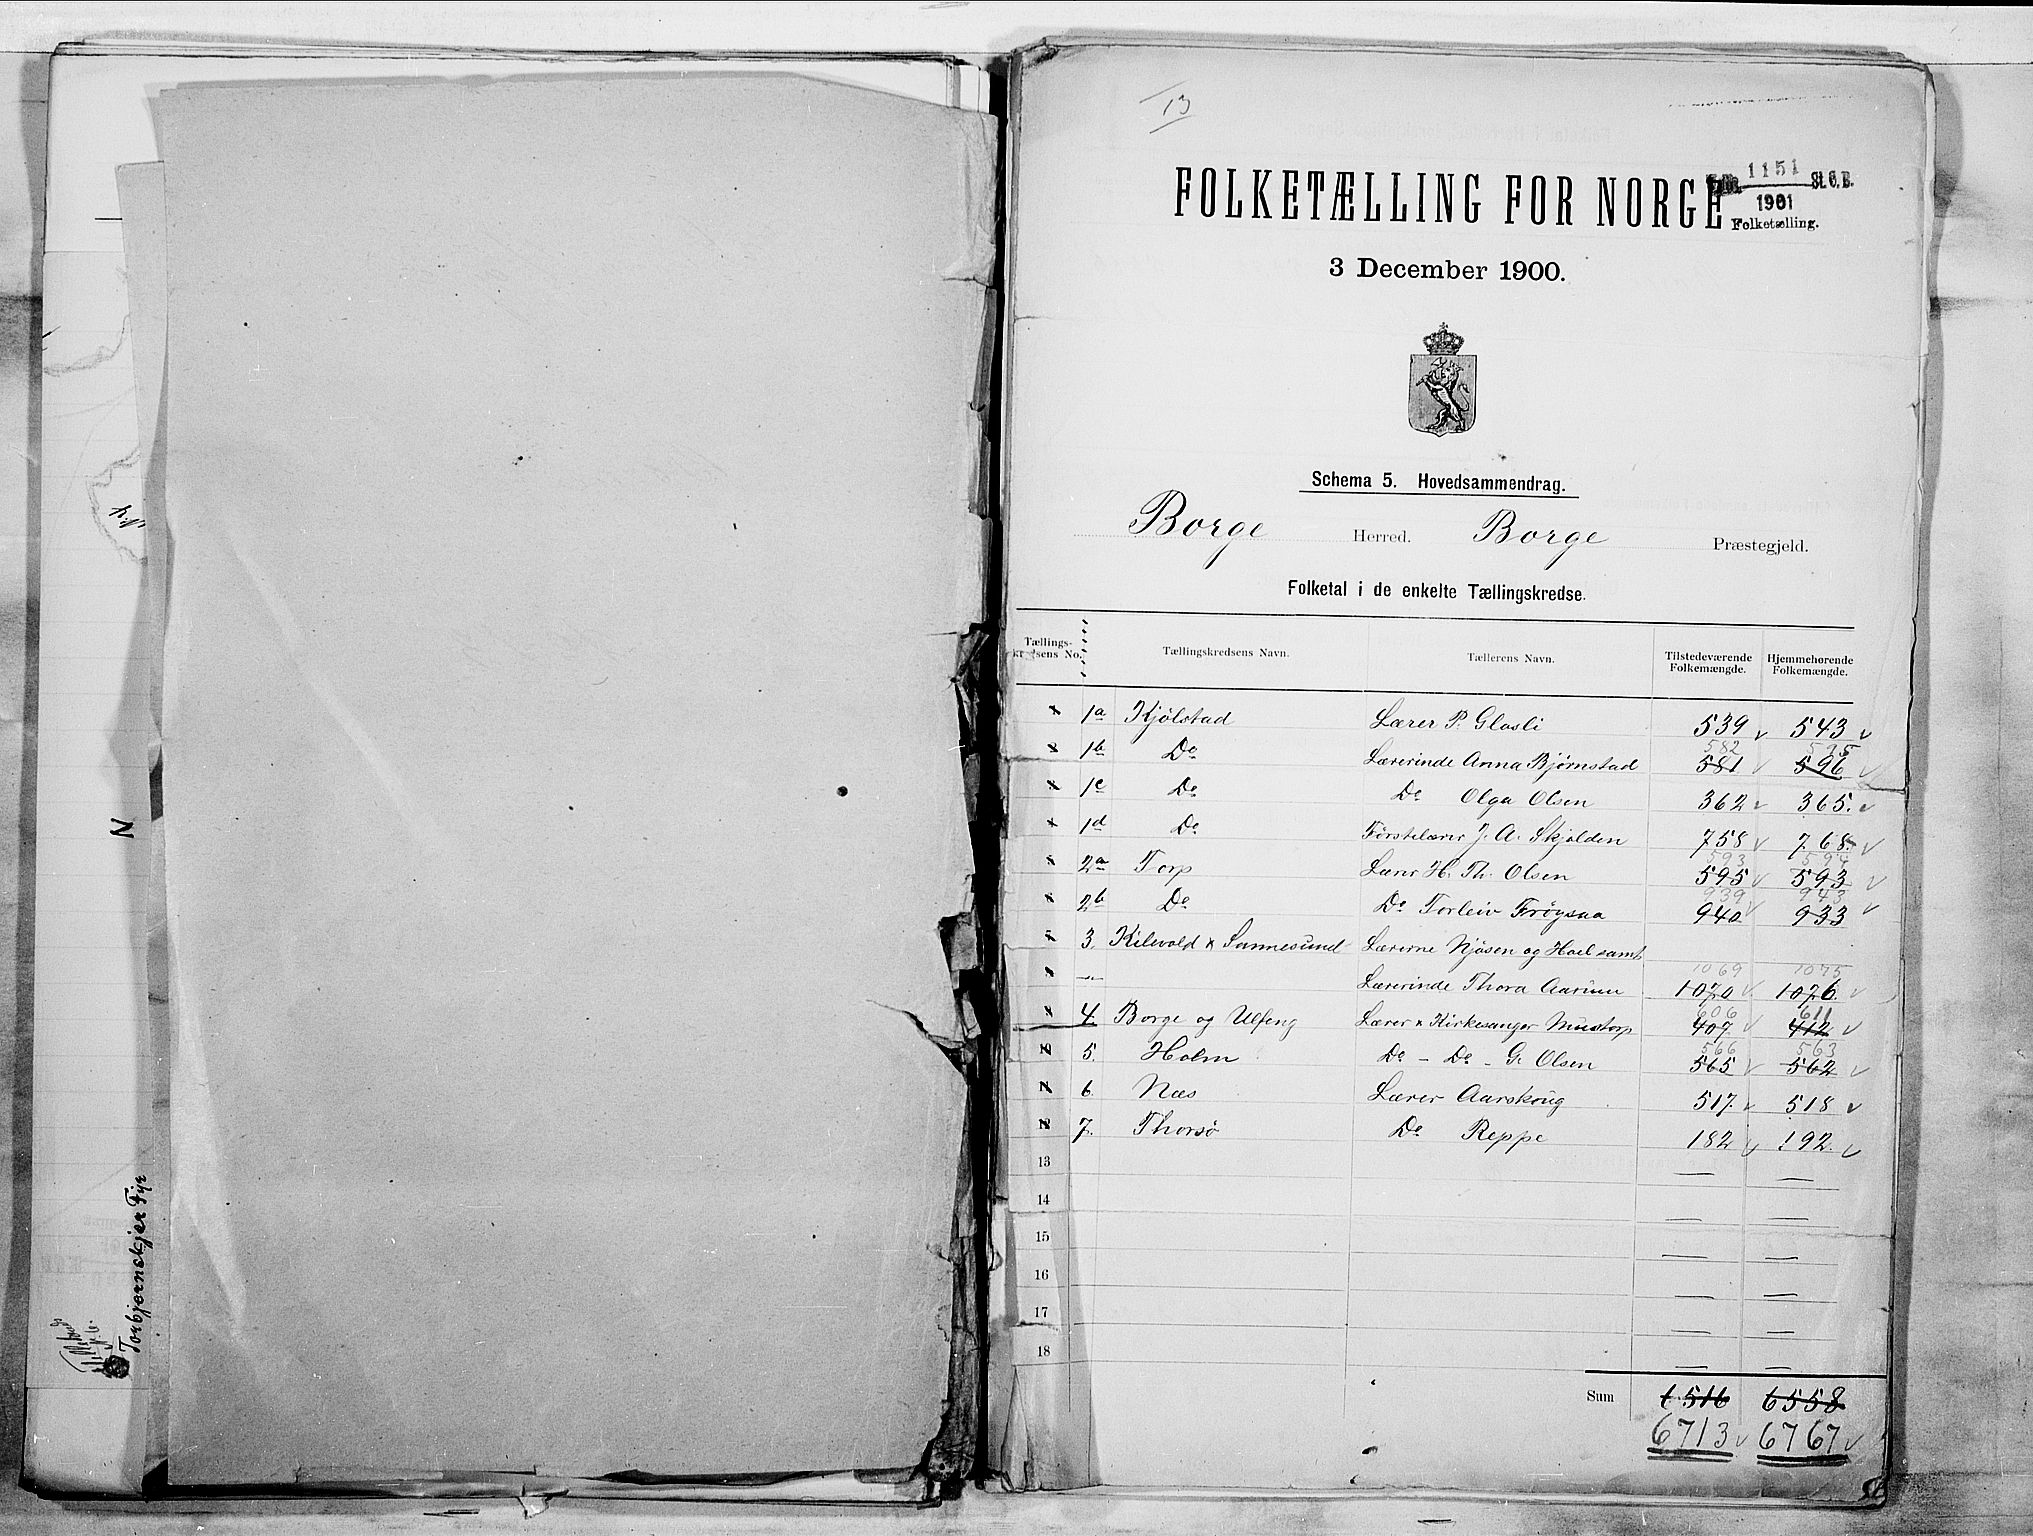 N
Torbjørnskjer Fyr
13
FOLKETÆLLING FOR NORGE
1151 St. C. B.
1901
Folketælling.
3 December 1900.
Schema 5. Hovedsammendrag.
Borge Herred. Borge Præstegjeld.
Folketal i de enkelte Tællingskredse.
Tællingskredsens No. Tællingskredsens Navn. Tællerens Navn. Tilstedeværende Folkemængde. Hjemmehørende Folkemængde.
1a Kjølstad Lærer P. Glosli 539 543
582 595
1b Do Lærerinde Anna Bjørnstad 581 596
1c Do Do Olga Olsen 362 365.
1d Do Førstelærer J. A. Skjolden 758 768.
593 594
2a Torp Lærer H. Th. Olsen 595 593
939 943
2b Do Do Torleiv Frøysaa 940 933
3. Kilevold & Sannesund Lærerne Njøsen og Hoel samt
1069 1075
Lærerinde Thora Aarum 1070 1076.
606 611
4. Borge og Ulfeng Lærer & Kirkesanger Mustorp 407. 412
566 563
5. Holm Do - Do - G. Olsen 565 562
6. Næs Lærer Aarskoug 517. 518
7. Thorsø Do Reppe 182 192.
13
14
15
16
17
18
Sum 6516 6558
6713 6767